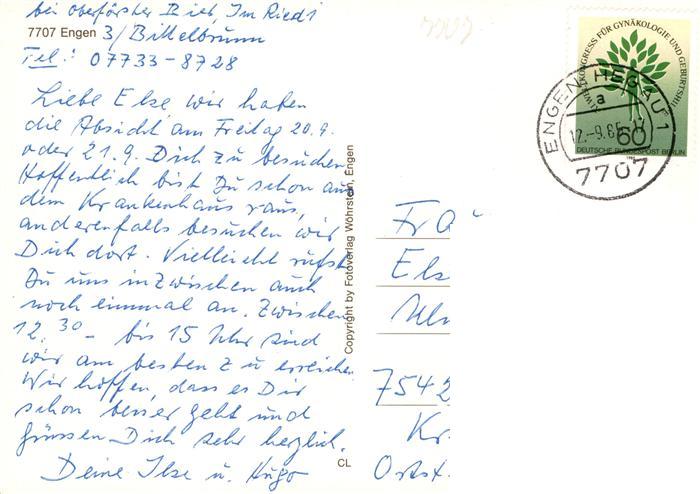 bei Oberförster Bieb, Im Ried 1
7707 Engen 3/Bittelbrunn
Tel.: 07733-8728
Liebe Else wir haben
die Absicht am Freitag 20.9.
oder 21.9. Dich zu besuchen
Hoffentlich bist Du schon aus
dem Krankenhaus raus,
anderenfalls besuchen wir
Dich dort. Vielleicht rufst
Du uns inzwischen auch
noch einmal an. Zwischen
12.30 - bis 15 Uhr sind
wir am besten zu erreichen
Wir hoffen, dass es Dir
schon besser geht und
grüssen Dich sehr herzlich.
Deine Ilse u. Hugo
Copyright by Fotoverlag Wöhrstein, Engen
CL
7707
WELTKONGRESS FÜR GYNÄKOLOGIE UND GEBURTSHILFE
60
DEUTSCHE BUNDESPOST BERLIN
ENGEN, HEGAU 1
a
12.-9.85-17
7707
Fra
Els
Ulm
7542
Kr.
Ortst.